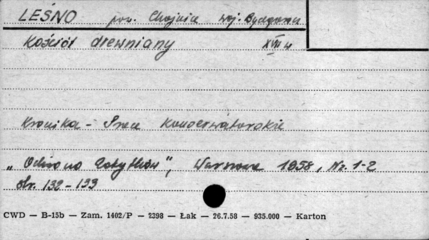 LEŚNO pow. Chojnice woj. Bydgoszcz
Kościół drewniany XVII w
Kronika - Prace Konserwatorskie
„Ochrona Zabytków", Warszawa 1958, Nr. 1-2
str. 132-133
CWD — B-15b — Zam. 1402/P — 2398 — Łak — 26.7.58 — 935.000 — Karton